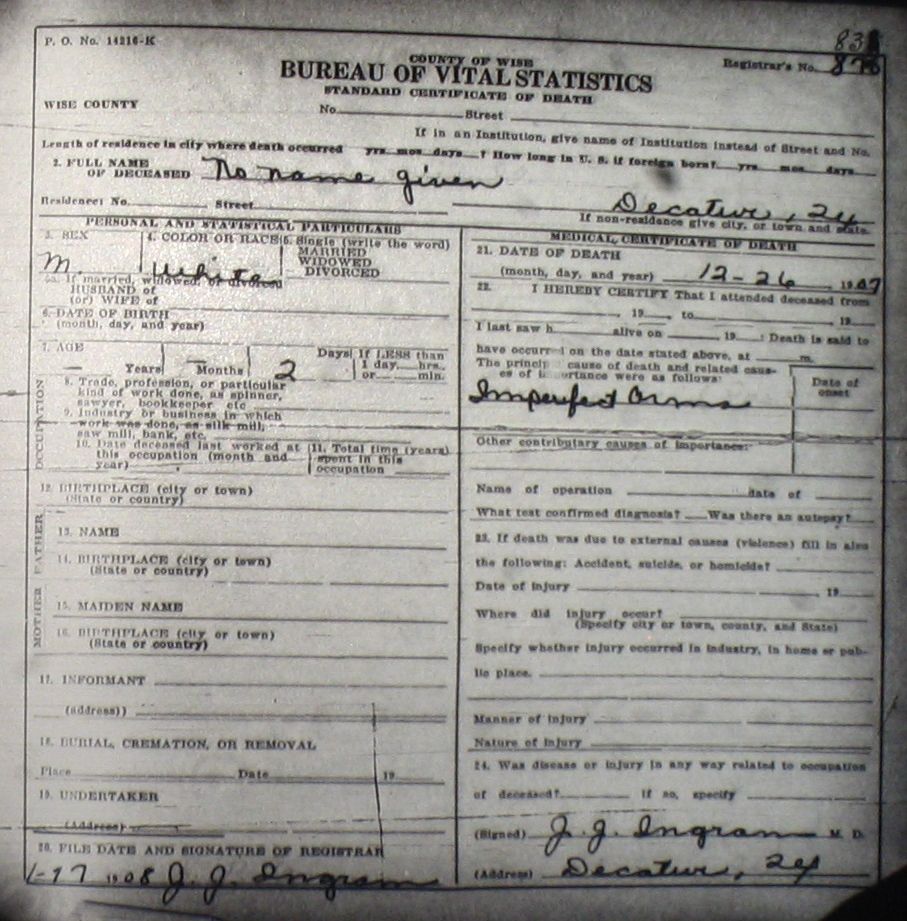 P. O. No. 14216-K
COUNTY OF WISE
BUREAU OF VITAL STATISTICS
STANDARD CERTIFICATE OF DEATH
Registrar's No.
WISE COUNTY No. Street
If in an Institution, give name of Institution instead of Street and No.
Length of residence in city where death occurred yrs mos days ? How long in U. S. if foreign born? yrs mos days
2. FULL NAME OF DECEASED No name given
Residence: No. Street Decatur,
If non-residence give city, or town and state.
PERSONAL AND STATISTICAL PARTICULARS
3. SEX M.
4. COLOR OR RACE White
5. Single (write the word)
MARRIED
WIDOWED
DIVORCED
5a. If married, widowed, or divorced
HUSBAND of
(or) WIFE of
6. DATE OF BIRTH
(month, day, and year)
7. AGE — Years — Months 2 Days If LESS than
1 day hrs.
or min.
OCCUPATION
8. Trade, profession, or particular
kind of work done, as spinner,
sawyer, bookkeeper etc
9. Industry or business in which
work was done, as silk mill,
saw mill, bank, etc.
10. Date deceased last worked at
this occupation (month and
year)
11. Total time (years)
spent in this
occupation
12. BIRTHPLACE (city or town)
(State or country)
FATHER
13. NAME
14. BIRTHPLACE (city or town)
(State or country)
MOTHER
15. MAIDEN NAME
16. BIRTHPLACE (city or town)
(State or country)
17. INFORMANT
(address))
18. BURIAL, CREMATION, OR REMOVAL
Place Date 19
19. UNDERTAKER
(Address)
20. FILE DATE AND SIGNATURE OF REGISTRAR
1908 J. J. Ingram
MEDICAL CERTIFICATE OF DEATH
21. DATE OF DEATH
(month, day, and year) 12-26 1907
22. I HEREBY CERTIFY That I attended deceased from
, 19 , to , 19
I last saw h alive on , 19 ; Death is said to
have occurred on the date stated above, at m.
The princip cause of death and related cau-
es of importance were as follows:
Date of
onset
Imperfect Arms
Other contributary causes of importance:
Name of operation date of
What test confirmed diagnosis? Was there an autopsy?
23. If death was due to external causes (violence) fill in also
the following: Accident, suicide, or homicide?
Date of injury 19
Where did injury occur?
(Specify city or town, county, and State)
Specify whether injury occurred in industry, in home or pub-
lic place.
Manner of injury
Nature of injury
24. Was disease or injury in any way related to occupation
of deceased? If so, specify
(Signed) J. J. Ingram M. D.
(Address) Decatur,